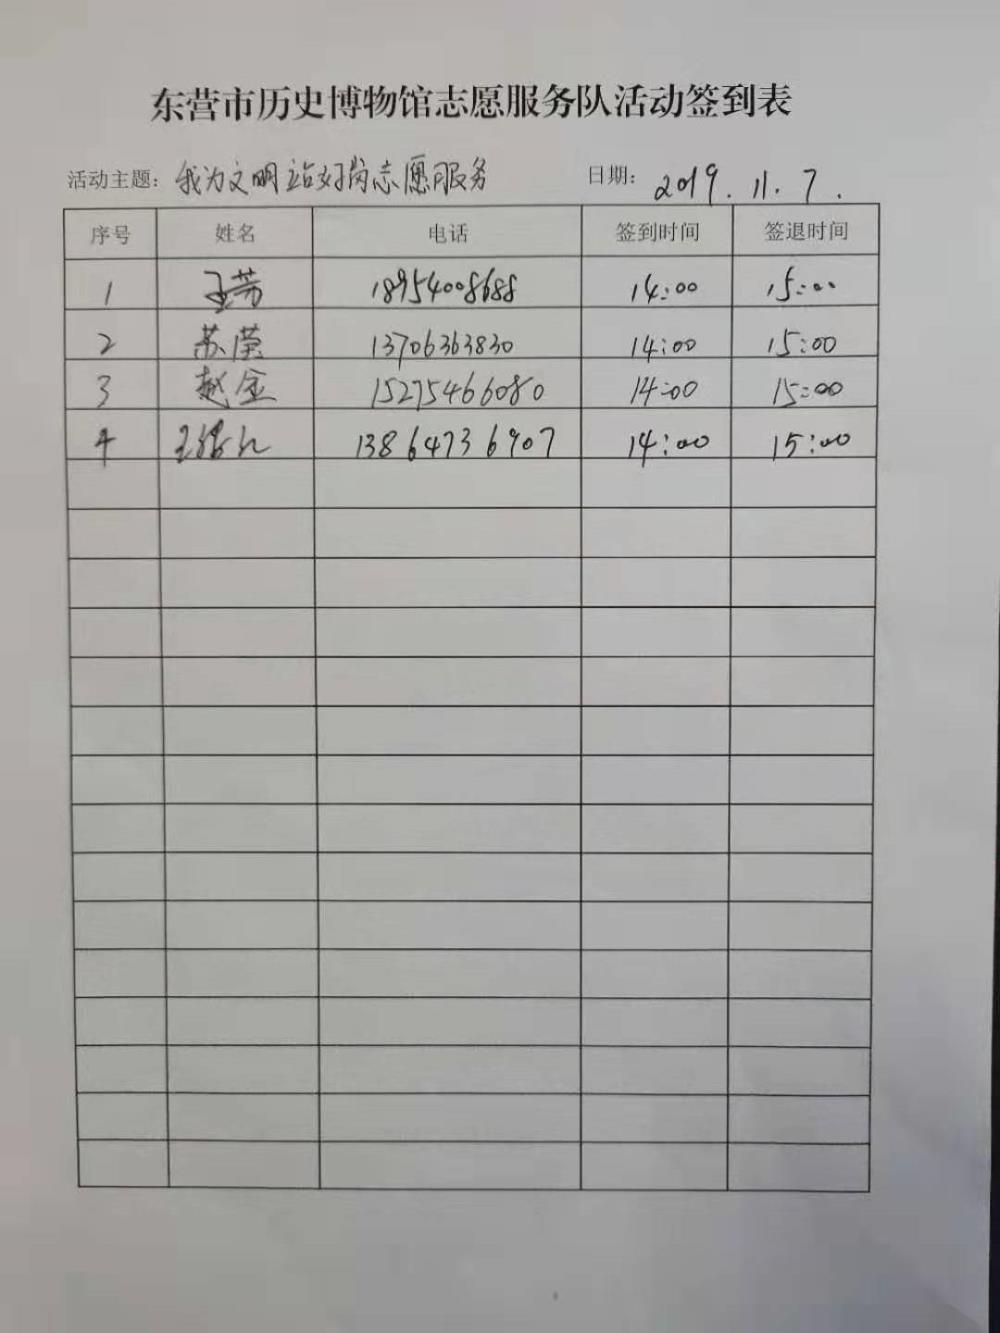 东营市历史博物馆志愿服务队活动签到表
活动主题: 我为文明站好岗志愿服务 日期: 2019.11.7.
序号 姓名 电话 签到时间 签退时间
1 王芳 18954008688 14:00 15:00
2 苏莹 13706363830 14:00 15:00
3 赵金 15275466080 14:00 15:00
4 13864736907 14:00 15:00